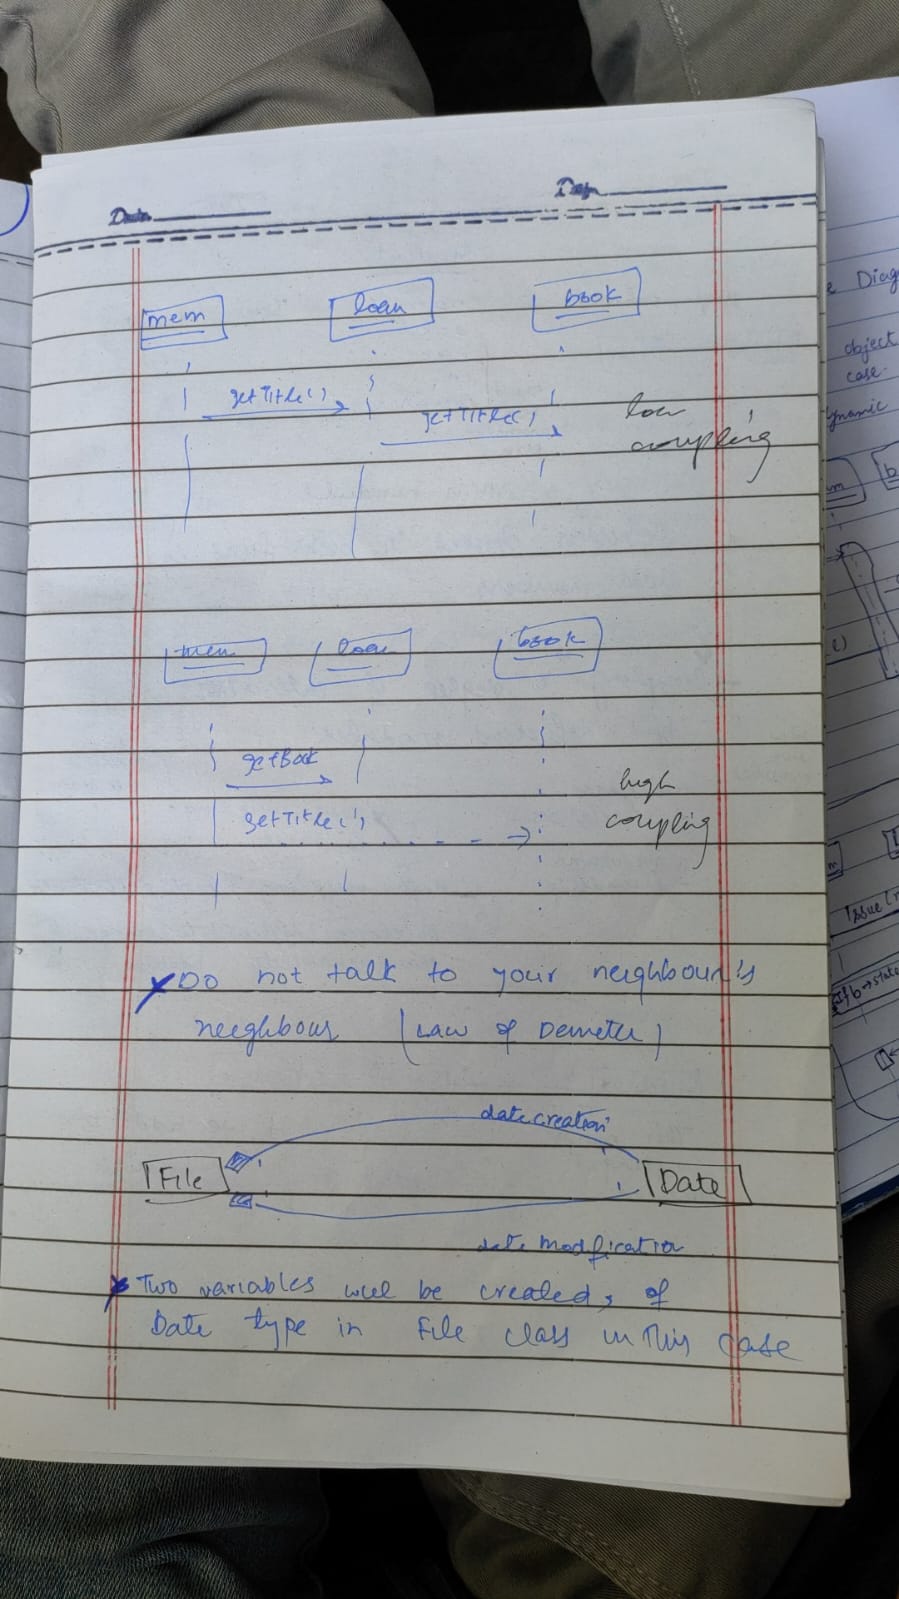 Date
Day
mem
loan
book
getTitle()
getTitle()
low
coupling
mem
loan
book
getBook
getTitle()
high
coupling
Do not talk to your neighbour's
neighbour (Law of Demeter)
date creation
File
Date
date modification
Two variables will be created, of
Date type in File class in this case
e Diag
object
case.
ynamic
Issue(
If b→state